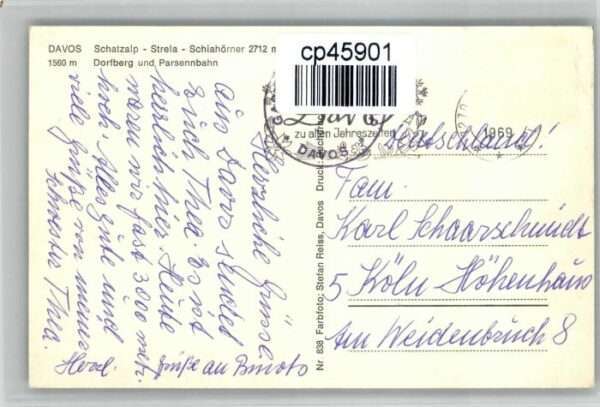 DAVOS Schatzalp - Strela - Schiahörner 2712 m
1560 m Dorfberg und Parsennbahn
cp45901
Davos
zu allen Jahreszeiten
DAVOS
1969
Herzliche Grüsse
aus Davos sendet
Euch Thea. Es ist
herrlich hier. Heute
waren wir fast 3000 mtr.
hoch. Alles gute und
viele Grüße von meiner
Schwester Thea.
Herzl. Grüße an
Nr 838 Farbfoto: Stefan Reiss, Davos Druck
Deutschland!
Fam.
Karl Schaarschmidt
5 Köln-Höhenhaus
Am Weidenbruch 8